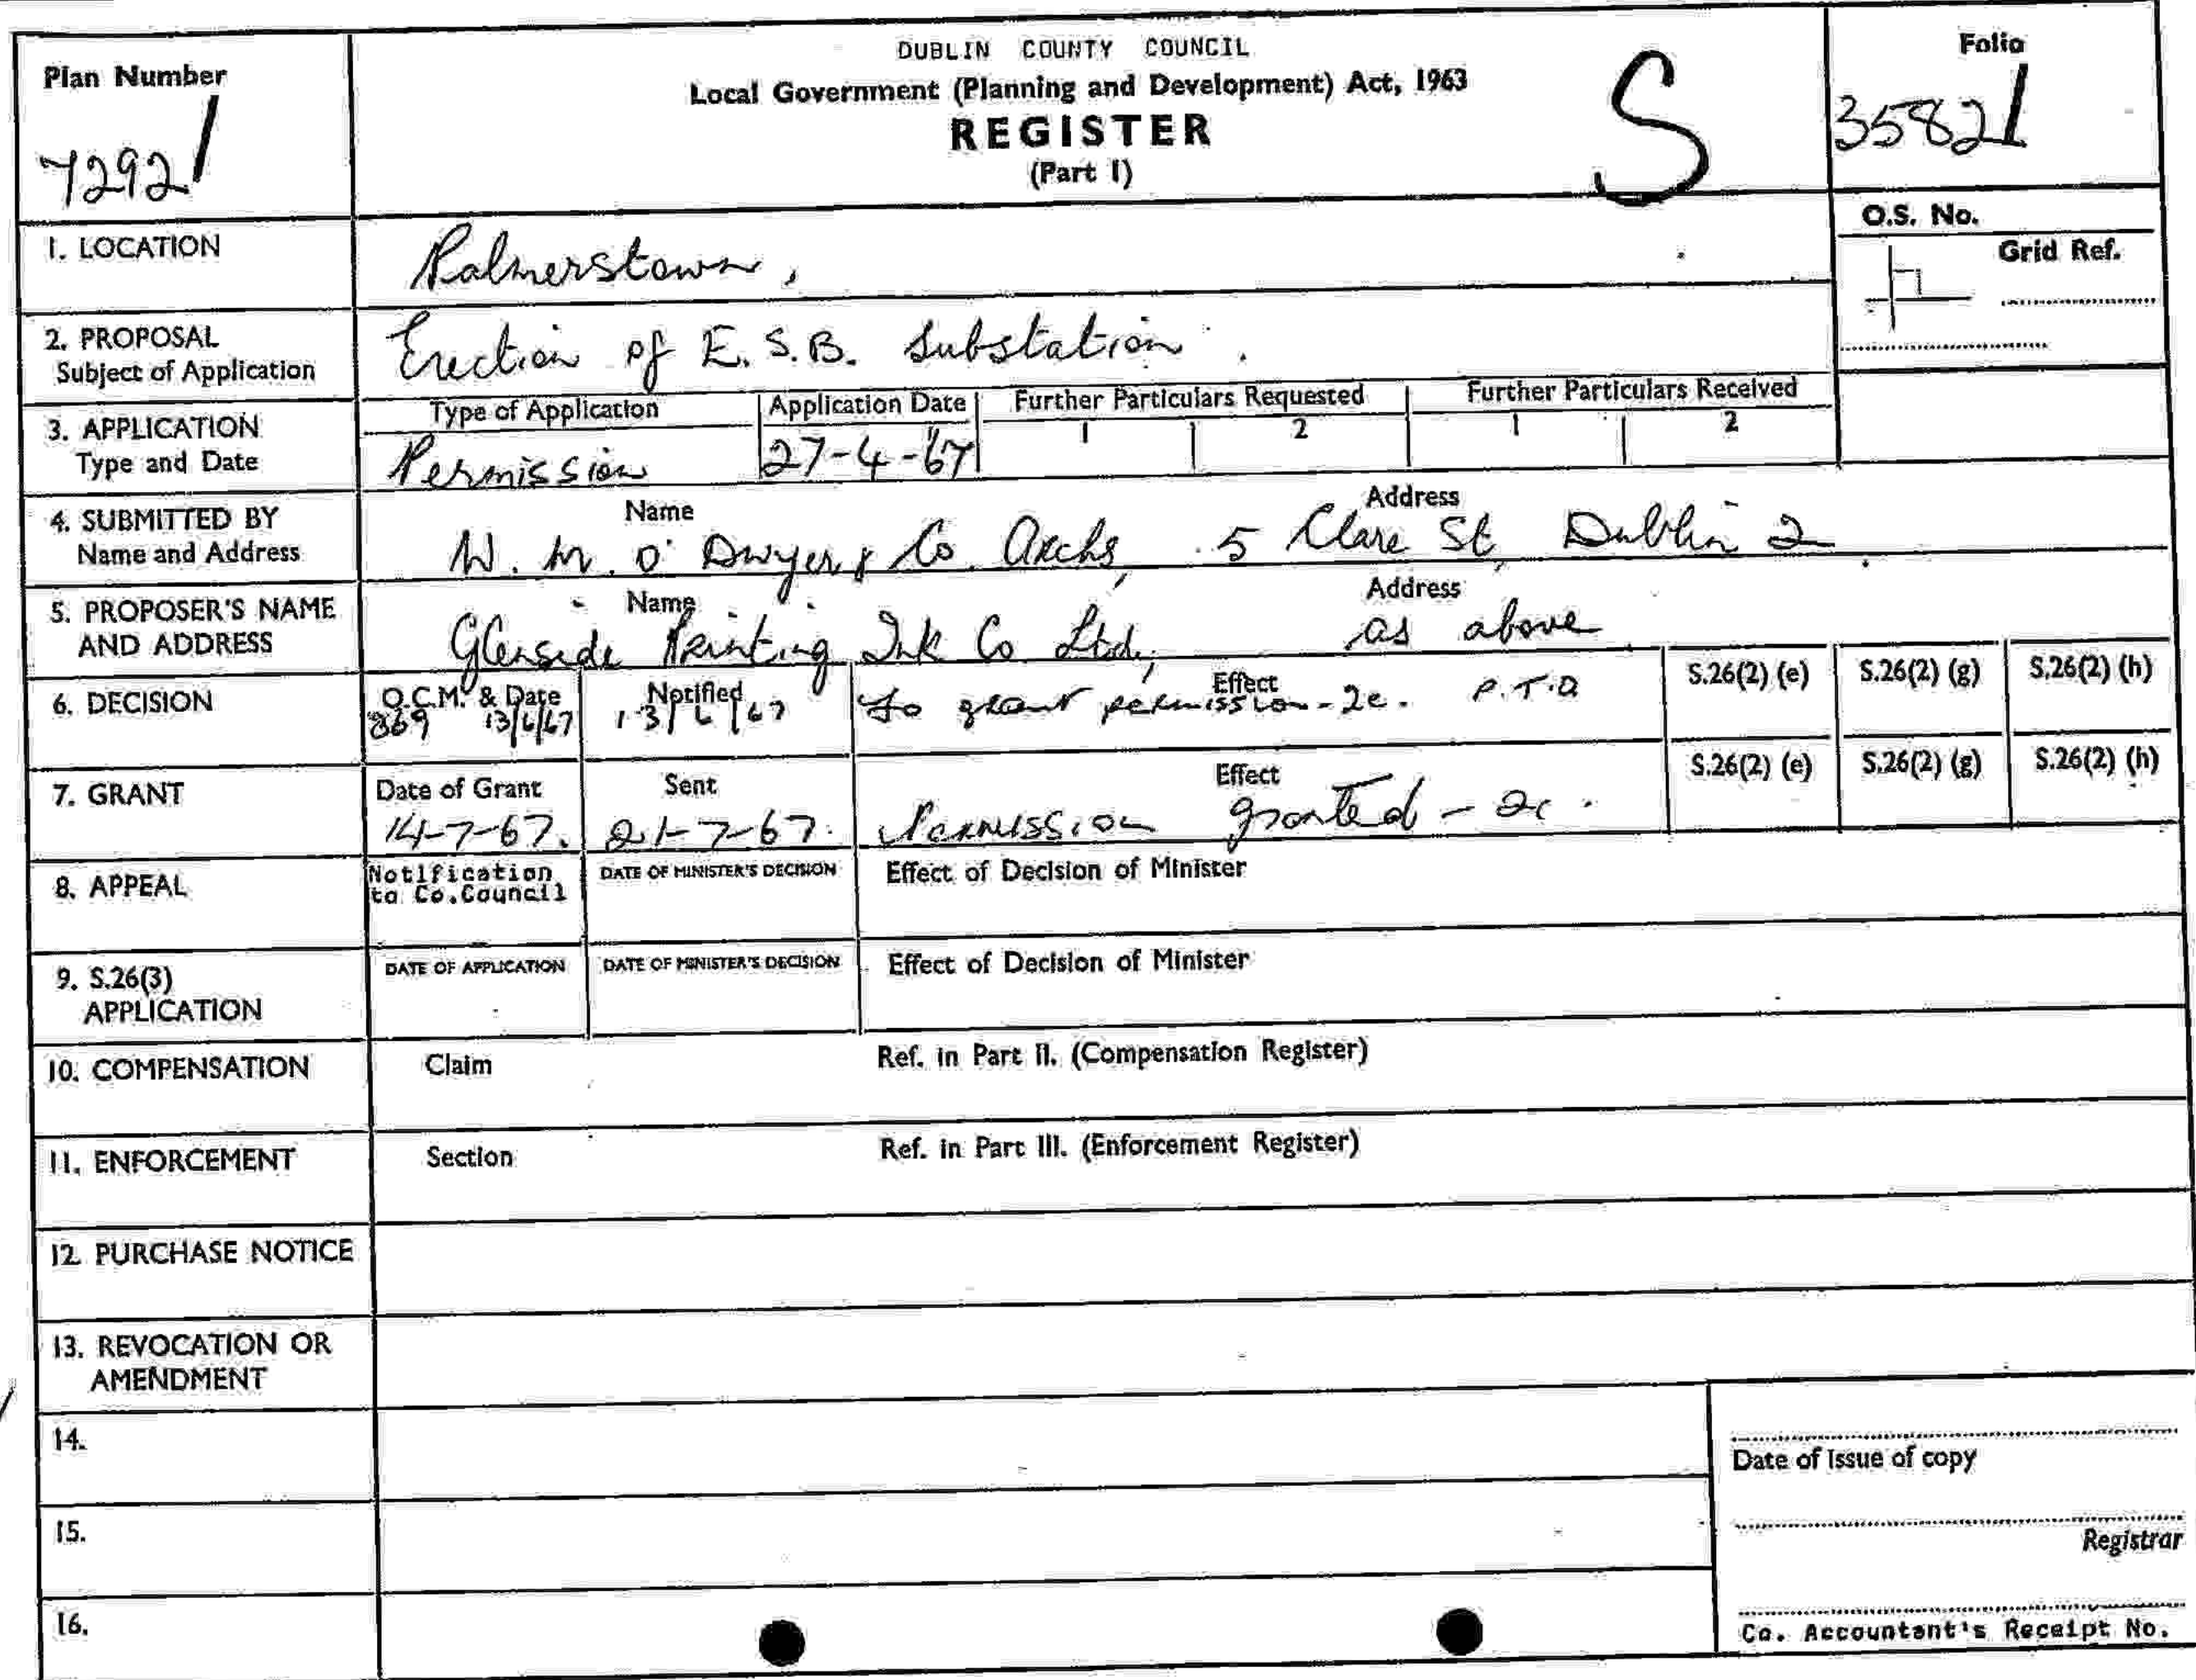 DUBLIN COUNTY COUNCIL
Local Government (Planning and Development) Act, 1963
REGISTER
(Part I)
S
Plan Number
7292/
Folio
3582/
O.S. No.
Grid Ref.
1. LOCATION
Palmerstown,
2. PROPOSAL
Subject of Application
Erection of E.S.B. Substation.
3. APPLICATION
Type and Date
Type of Application
Permission
Application Date
27-4-67
Further Particulars Requested
1 2
Further Particulars Received
1 2
4. SUBMITTED BY
Name and Address
Name Address
W. M. O'Dwyer & Co. Archs, 5 Clare St, Dublin 2.
5. PROPOSER'S NAME
AND ADDRESS
Name Address
Glenside Printing Ink Co Ltd, as above
6. DECISION
O.C.M. & Date
869 13/6/67
Notified
13/6/67
Effect
To grant permission - 2c. P.T.O
S.26(2) (e) S.26(2) (g) S.26(2) (h)
7. GRANT
Date of Grant
14-7-67.
Sent
21-7-67.
Effect
Permission granted - 2c.
S.26(2) (e) S.26(2) (g) S.26(2) (h)
8. APPEAL
Notification
to Co.Council
DATE OF MINISTER'S DECISION
Effect of Decision of Minister
9. S.26(3)
APPLICATION
DATE OF APPLICATION
DATE OF MINISTER'S DECISION
Effect of Decision of Minister
10. COMPENSATION
Claim
Ref. in Part II. (Compensation Register)
11. ENFORCEMENT
Section
Ref. in Part III. (Enforcement Register)
12. PURCHASE NOTICE
13. REVOCATION OR
AMENDMENT
14.
15.
16.
Date of issue of copy
Registrar
Co. Accountant's Receipt No.